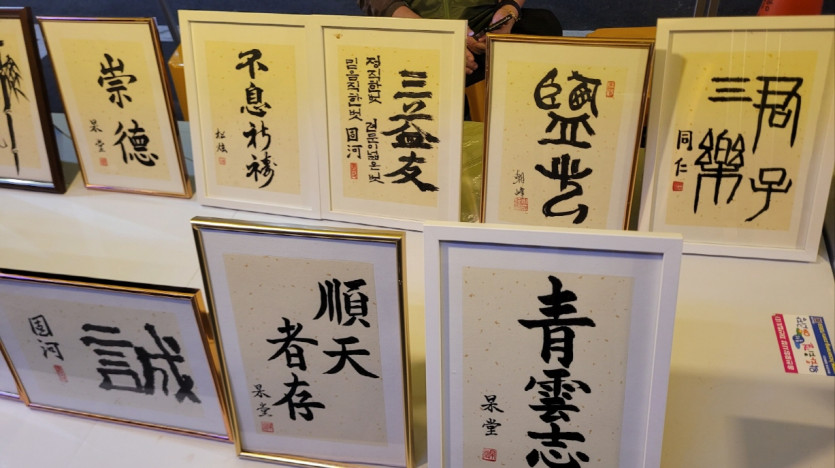 崇德
杲堂
不息祈禱
三益友
정직한벗
믿음직한벗
견문이넓은벗
固河
鹽
君子
三樂
同仁
誠
固河
順天
者存
杲堂
青雲志
杲堂